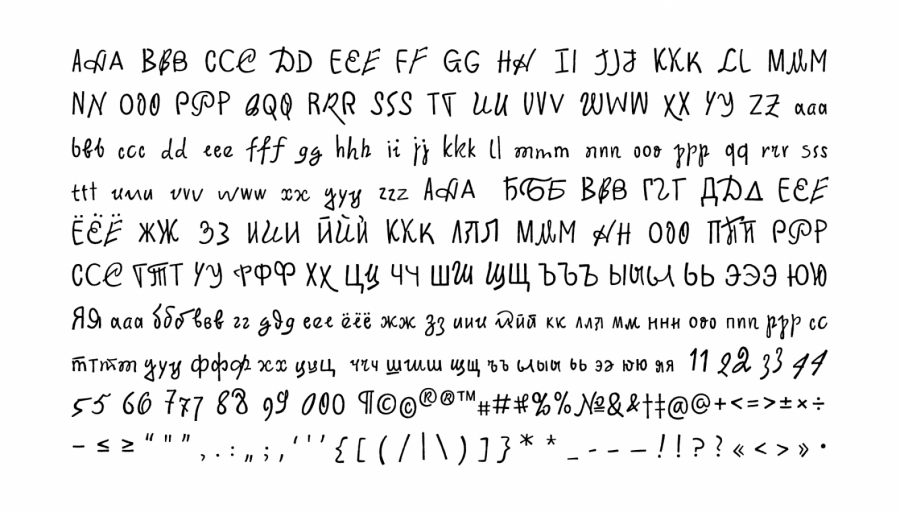 AAA BBB CCC DD EEE FF GG HH II JJJ KKK LL MMM
NN OOO PPP QQQ RRR SSS TT UU VVV WWW XX YY ZZ aaa
bbb ccc dd eee fff gg hhh ii jj kkk ll mmm nnn ooo ppp qq rrr sss
ttt uuu vvv www xx yyy zzz ААА БББ ВВВ ГГГ ДДД ЕЕЕ
ЁЁЁ ЖЖ ЗЗ ИИИ ЙЙЙ ККК ЛЛЛ МММ НН ООО ППП РРР
ССС ТТТ УУ ФФФ ХХ ЦЦ ЧЧ ШШ ЩЩ ЪЪЪ ЫЫЫ ЬЬ ЭЭЭ ЮЮ
ЯЯ ааа бббввв гг ддд еее ёёё жж ззз иии ййй кк ллл мм ннн ооо ппп ррр сс
тттт ууу фффф хх ццц ччч шшш щщ ъъ ыыы ьь ээ юю яя 11 22 33 44
55 66 777 88 99 000 ¶©©®®™###%%№&&†‡@@+<=>±×÷
− ≤ ≥ “ " ” , . : „ ; , ‘ ' ’ { [ ( / | \ ) ] } * * _ - – — ! ! ? ? « < > » •